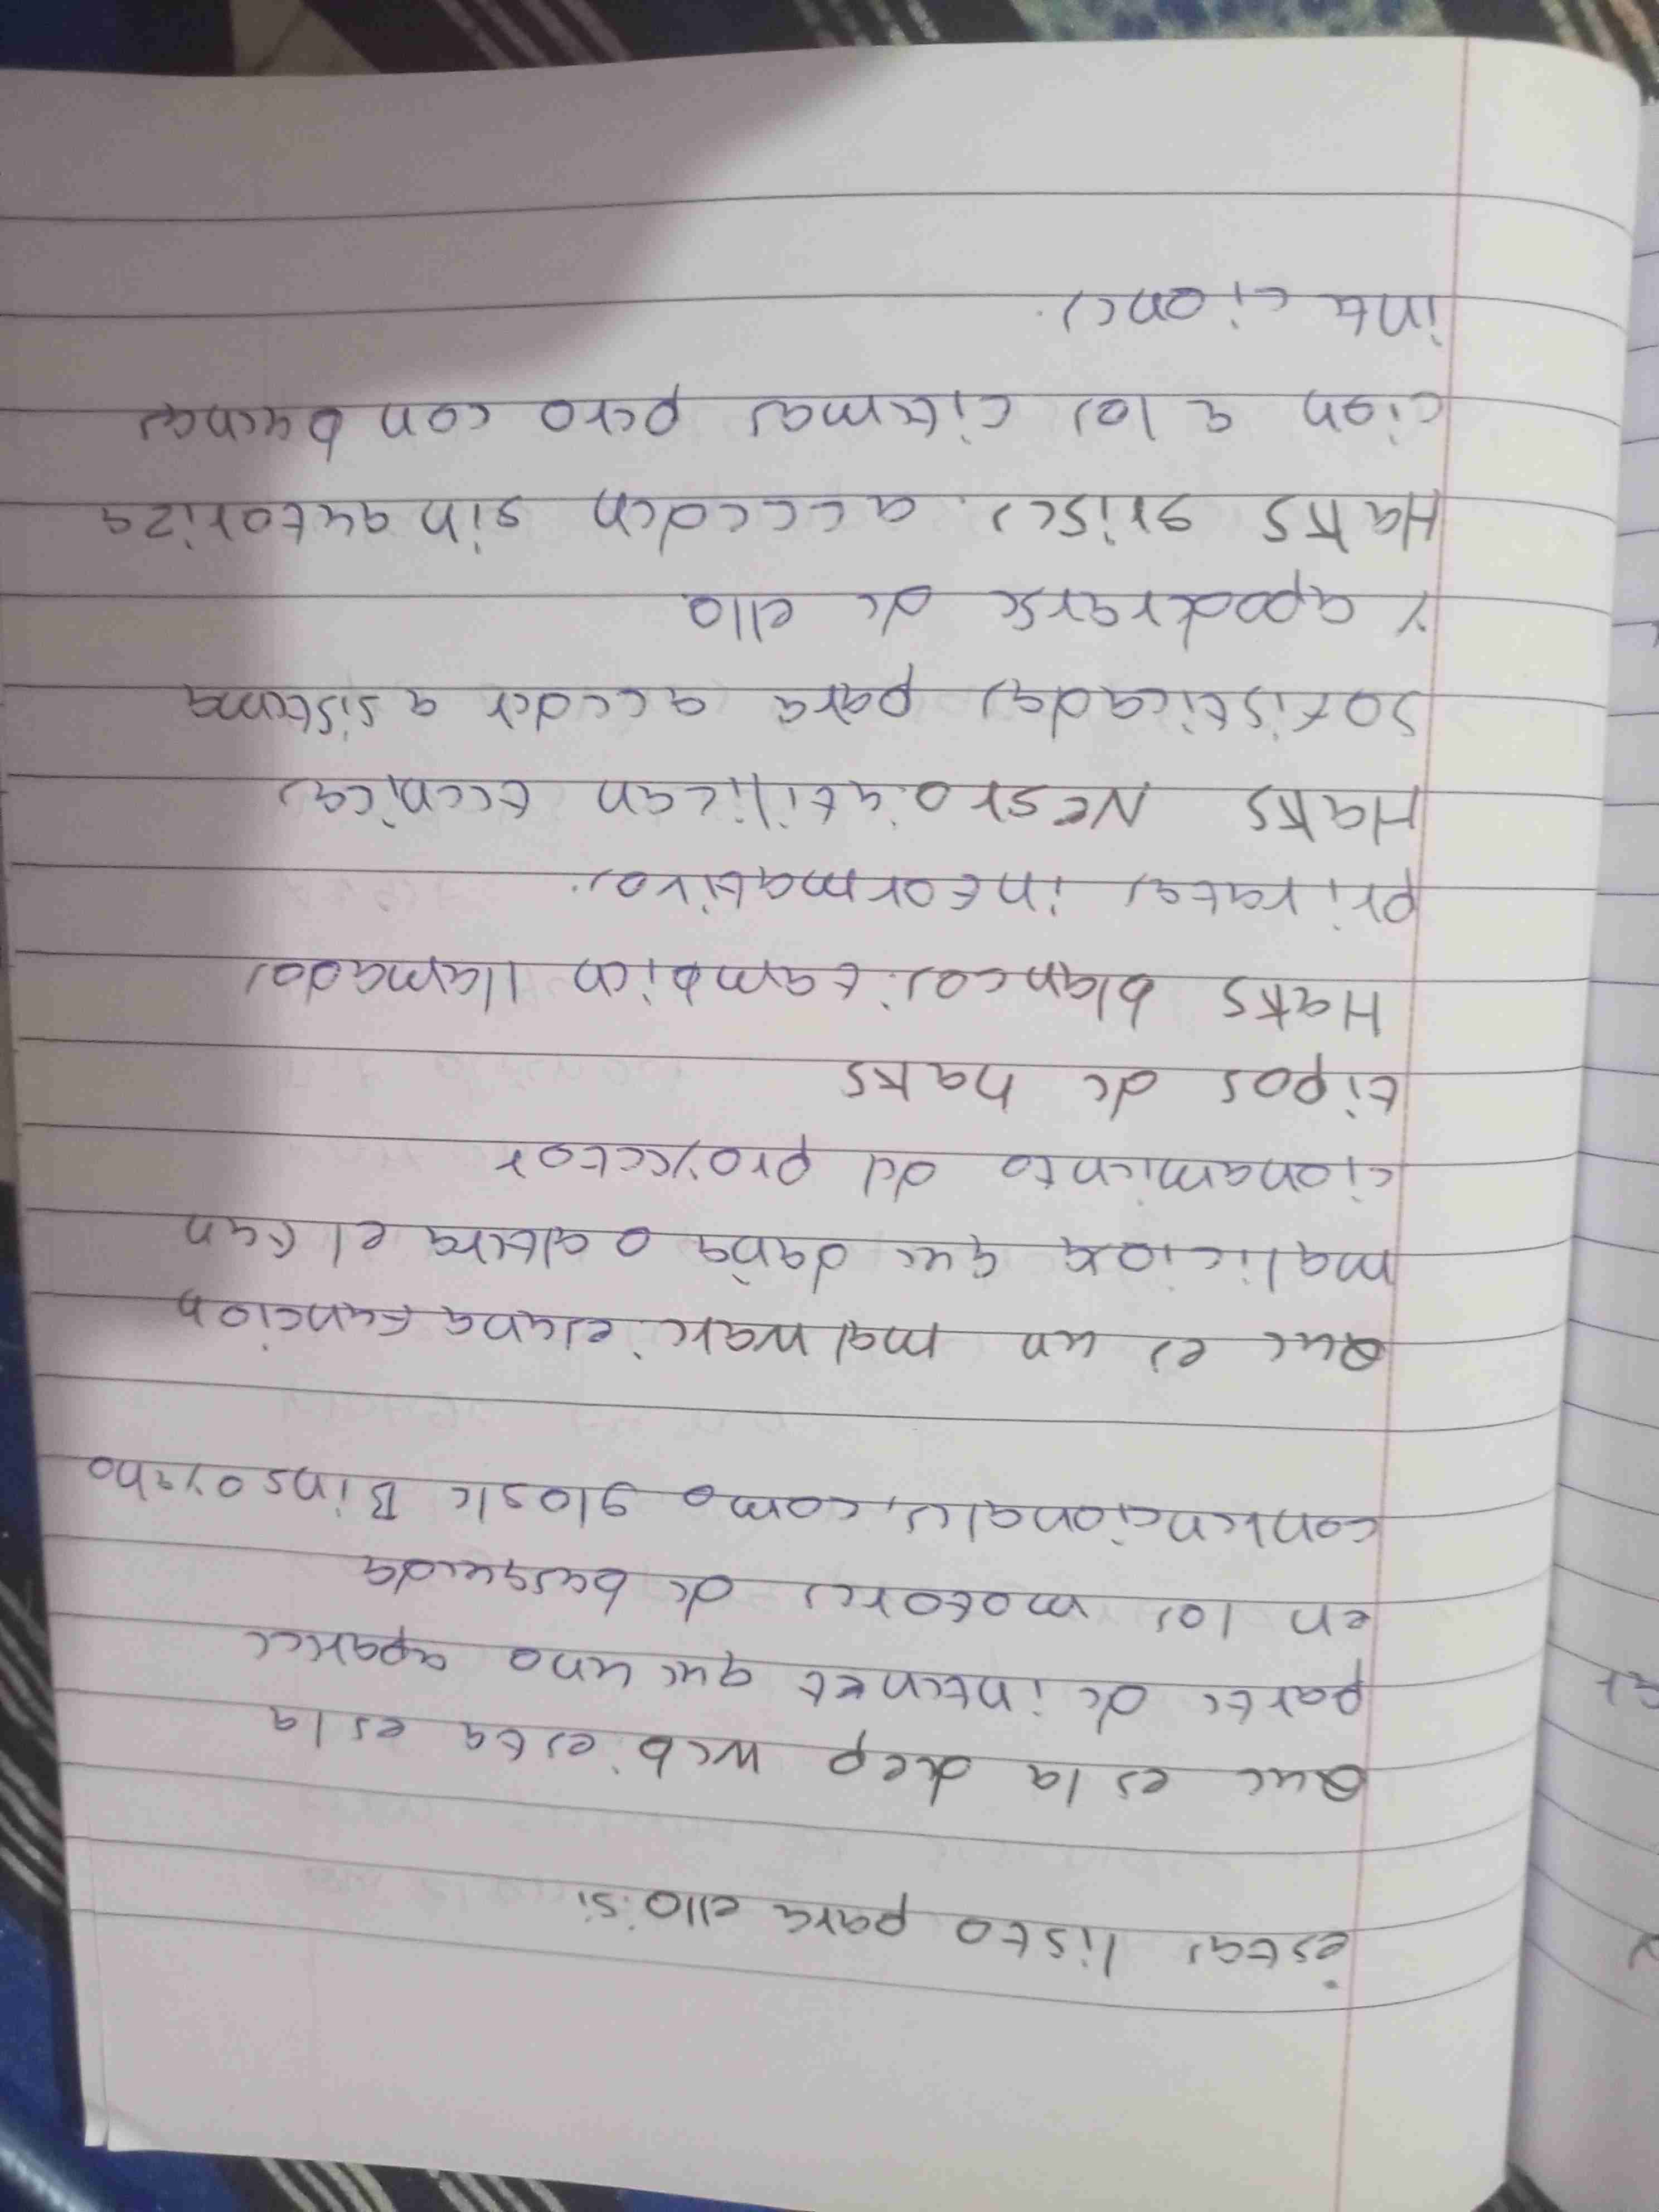 estas listo para ello:si
Que es la deep web:esta es la
parte de internet que uno aparece
en los motores de busqueda
convencionales, como glosle Bins oyaho
Que es un malware:es una función
maliciosa que daña o altera el fun
cionamiento del proyector
tipos de hats
Hats blancos:tambien llamados
piratas informativos.
Hats Negro:utilican tecnicas
sofisticadas para acceder a sistema
y apoderarse de ello
Hats grises: acceden sin autoriza
cion a los citemas pero con buenas
inta ciones.